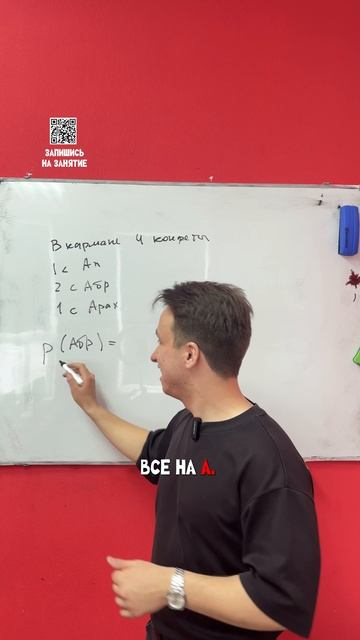 ЗАПИШИСЬ
НА ЗАНЯТИЕ
В кармане 4 конфеты
1 с Ап
2 с Абр
1 с Арах
P (Абр) =
ВСЕ НА А.